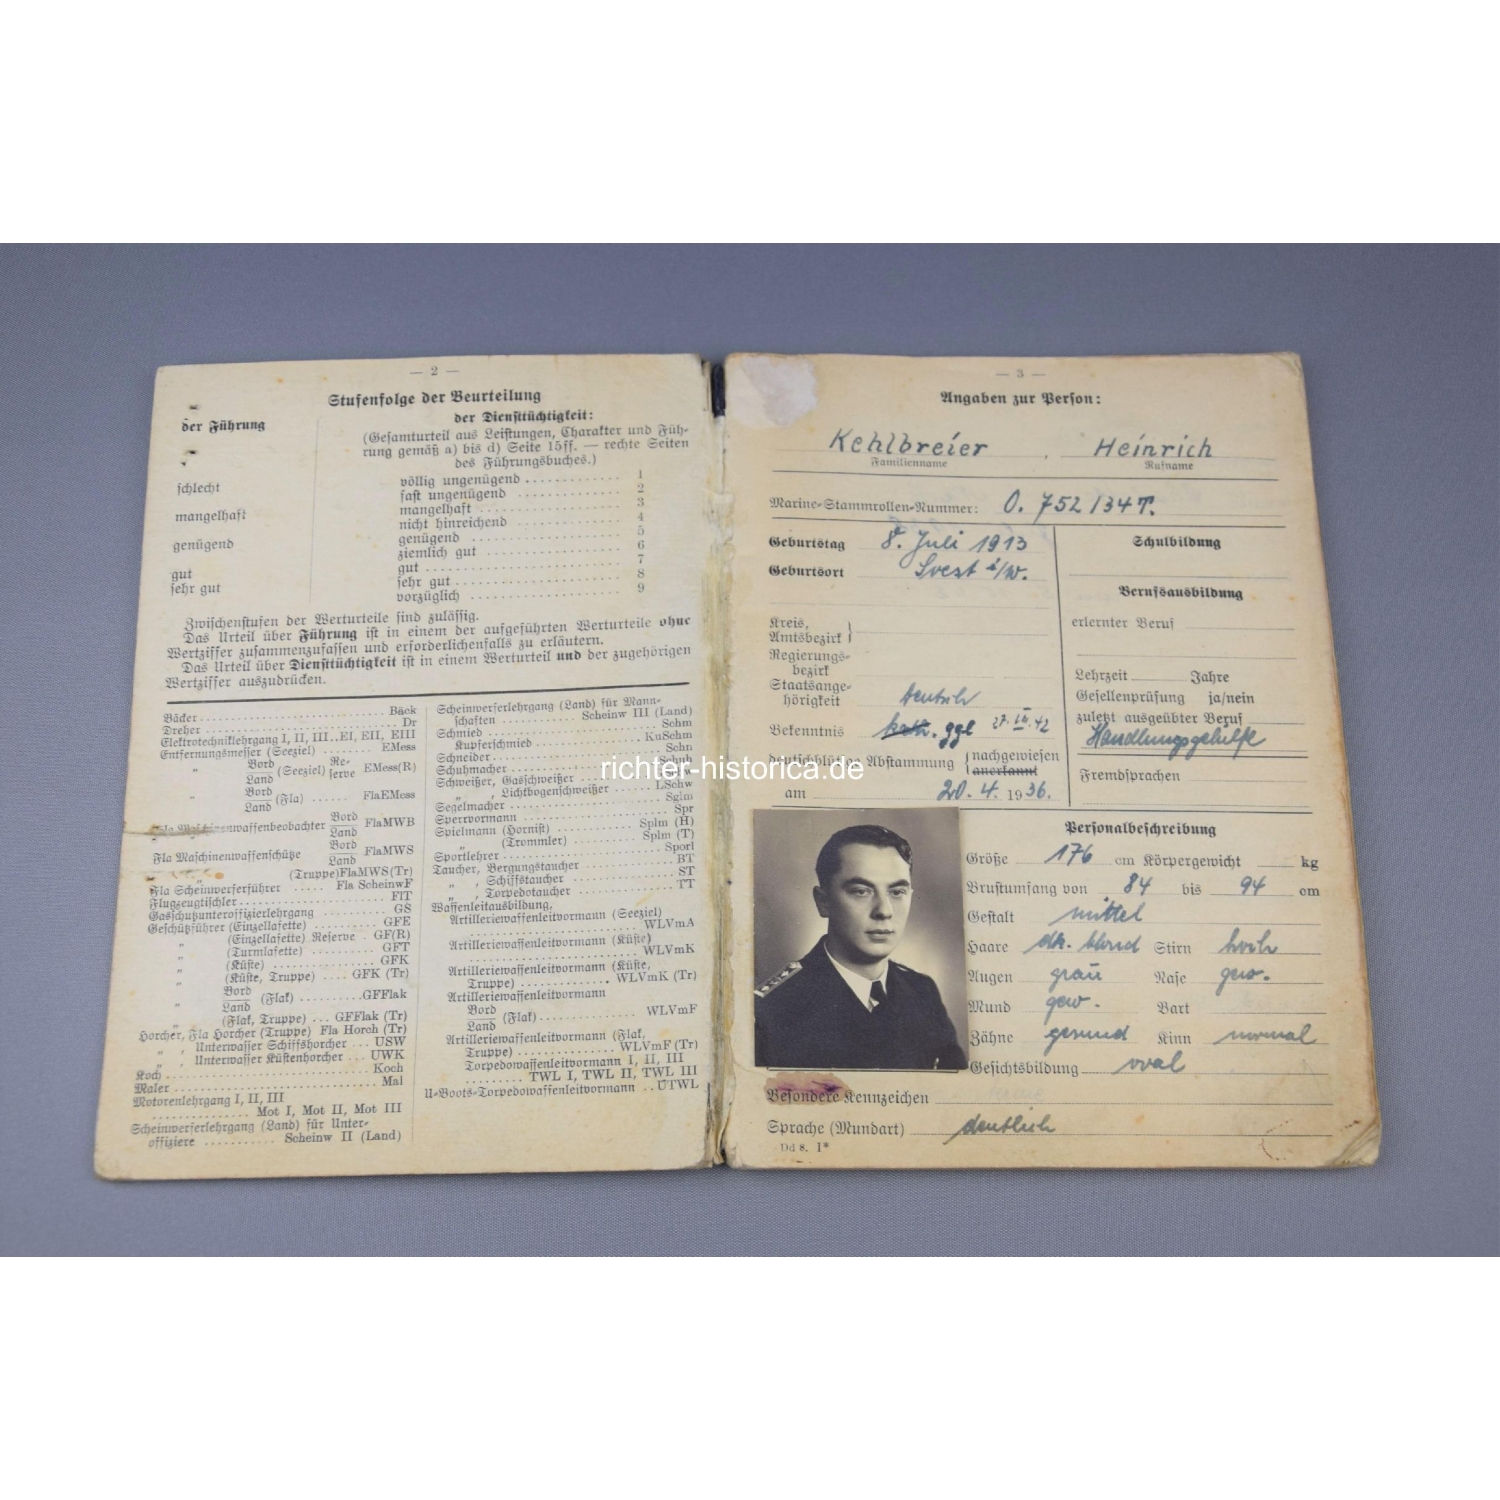 — 2 —
Stufenfolge der Beurteilung
der Führung
der Diensttüchtigkeit:
(Gesamturteil aus Leistungen, Charakter und Füh-
rung gemäß a) bis d) Seite 15ff. — rechte Seiten
des Führungsbuches.)
völlig ungenügend 1
schlecht fast ungenügend 2
mangelhaft 3
mangelhaft nicht hinreichend 4
genügend 5
genügend ziemlich gut 6
gut 7
gut sehr gut 8
sehr gut vorzüglich 9
Zwischenstufen der Werturteile sind zulässig.
Das Urteil über Führung ist in einem der aufgeführten Werturteile ohne
Wertziffer zusammenzufassen und erforderlichenfalls zu erläutern.
Das Urteil über Diensttüchtigkeit ist in einem Werturteil und der zugehörigen
Wertziffer auszudrücken.
Bäcker Bäck
Dreher Dr
Elektrotechniklehrgang I, II, III..EI, EII, EIII
Entfernungsmesser (Seeziel) EMess
" Bord Land (Seeziel) Re-serve EMess(R)
Bord Land (Fla) FlaEMess
Fla Maschinenwaffenbeobachter Bord Land FlaMWB
Fla Maschinenwaffenschütze Bord Land FlaMWS
" (Truppe)FlaMWS(Tr)
Fla Scheinwerferführer Fla ScheinwF
Flugzeugtischler FlT
Gasschutzunteroffizierlehrgang GS
Geschützführer (Einzellafette) GFE
" (Einzellafette) Reserve GF(R)
" (Turmlafette) GFT
" (Küste) GFK
" (Küste, Truppe) GFK (Tr)
" Bord Land (Flak) GFFlak
" (Flak, Truppe) GFFlak (Tr)
Horcher, Fla Horcher (Truppe) Fla Horch (Tr)
" , Unterwasser Schiffshorcher USW
" , Unterwasser Küstenhorcher UWK
Koch Koch
Maler Mal
Motorenlehrgang I, II, III
Mot I, Mot II, Mot III
Scheinwerferlehrgang (Land) für Unter-
offiziere Scheinw II (Land)
Scheinwerferlehrgang (Land) für Mann-
schaften Scheinw III (Land)
Schmied Schm
Kupferschmied KuSchm
Schneider Schn
Schuhmacher Schuh
Schweißer, Gasschweißer
" , Lichtbogenschweißer LSchw
Segelmacher Sglm
Sperrvormann Spr
Spielmann (Hornist) Splm (H)
" (Trommler) Splm (T)
Sportlehrer Sporl
Taucher, Bergungstaucher BT
" , Schiffstaucher ST
" , Torpedotaucher TT
Waffenleitausbildung,
Artilleriewaffenleitvormann (Seeziel)
WLVmA
Artilleriewaffenleitvormann (Küste)
WLVmK
Artilleriewaffenleitvormann (Küste,
Truppe) WLVmK (Tr)
Artilleriewaffenleitvormann
Bord Land (Flak) WLVmF
Artilleriewaffenleitvormann (Flak,
Truppe) WLVmF (Tr)
Torpedowaffenleitvormann I, II, III
TWL I, TWL II, TWL III
U-Boots-Torpedowaffenleitvormann UTWL
— 3 —
Angaben zur Person:
Kehlbreier, Heinrich
Familienname Rufname
Marine-Stammrollen-Nummer: O. 752/34T.
Geburtstag 8. Juli 1913
Geburtsort Soest i/W.
Kreis,
Amtsbezirk
Regierungs-
bezirk
Staatsange-
hörigkeit deutsch
Bekenntnis kath. ggl 27.IV.42
deutschblütige Abstammung nachgewiesen
anerkannt
am 20. 4. 1936.
Schulbildung
Berufsausbildung
erlernter Beruf
Lehrzeit Jahre
Gesellenprüfung ja/nein
zuletzt ausgeübter Beruf
Handlungsgehilfe
Fremdsprachen
Personalbeschreibung
Größe 176 cm Körpergewicht kg
Brustumfang von 84 bis 94 cm
Gestalt mittel
Haare dk. blond Stirn hoch
Augen grau Nase gew.
Mund gew. Bart
Zähne gesund Kinn normal
Gesichtsbildung oval
Besondere Kennzeichen
Sprache (Mundart) deutlich
Dd 8. I*
richter-historica.de